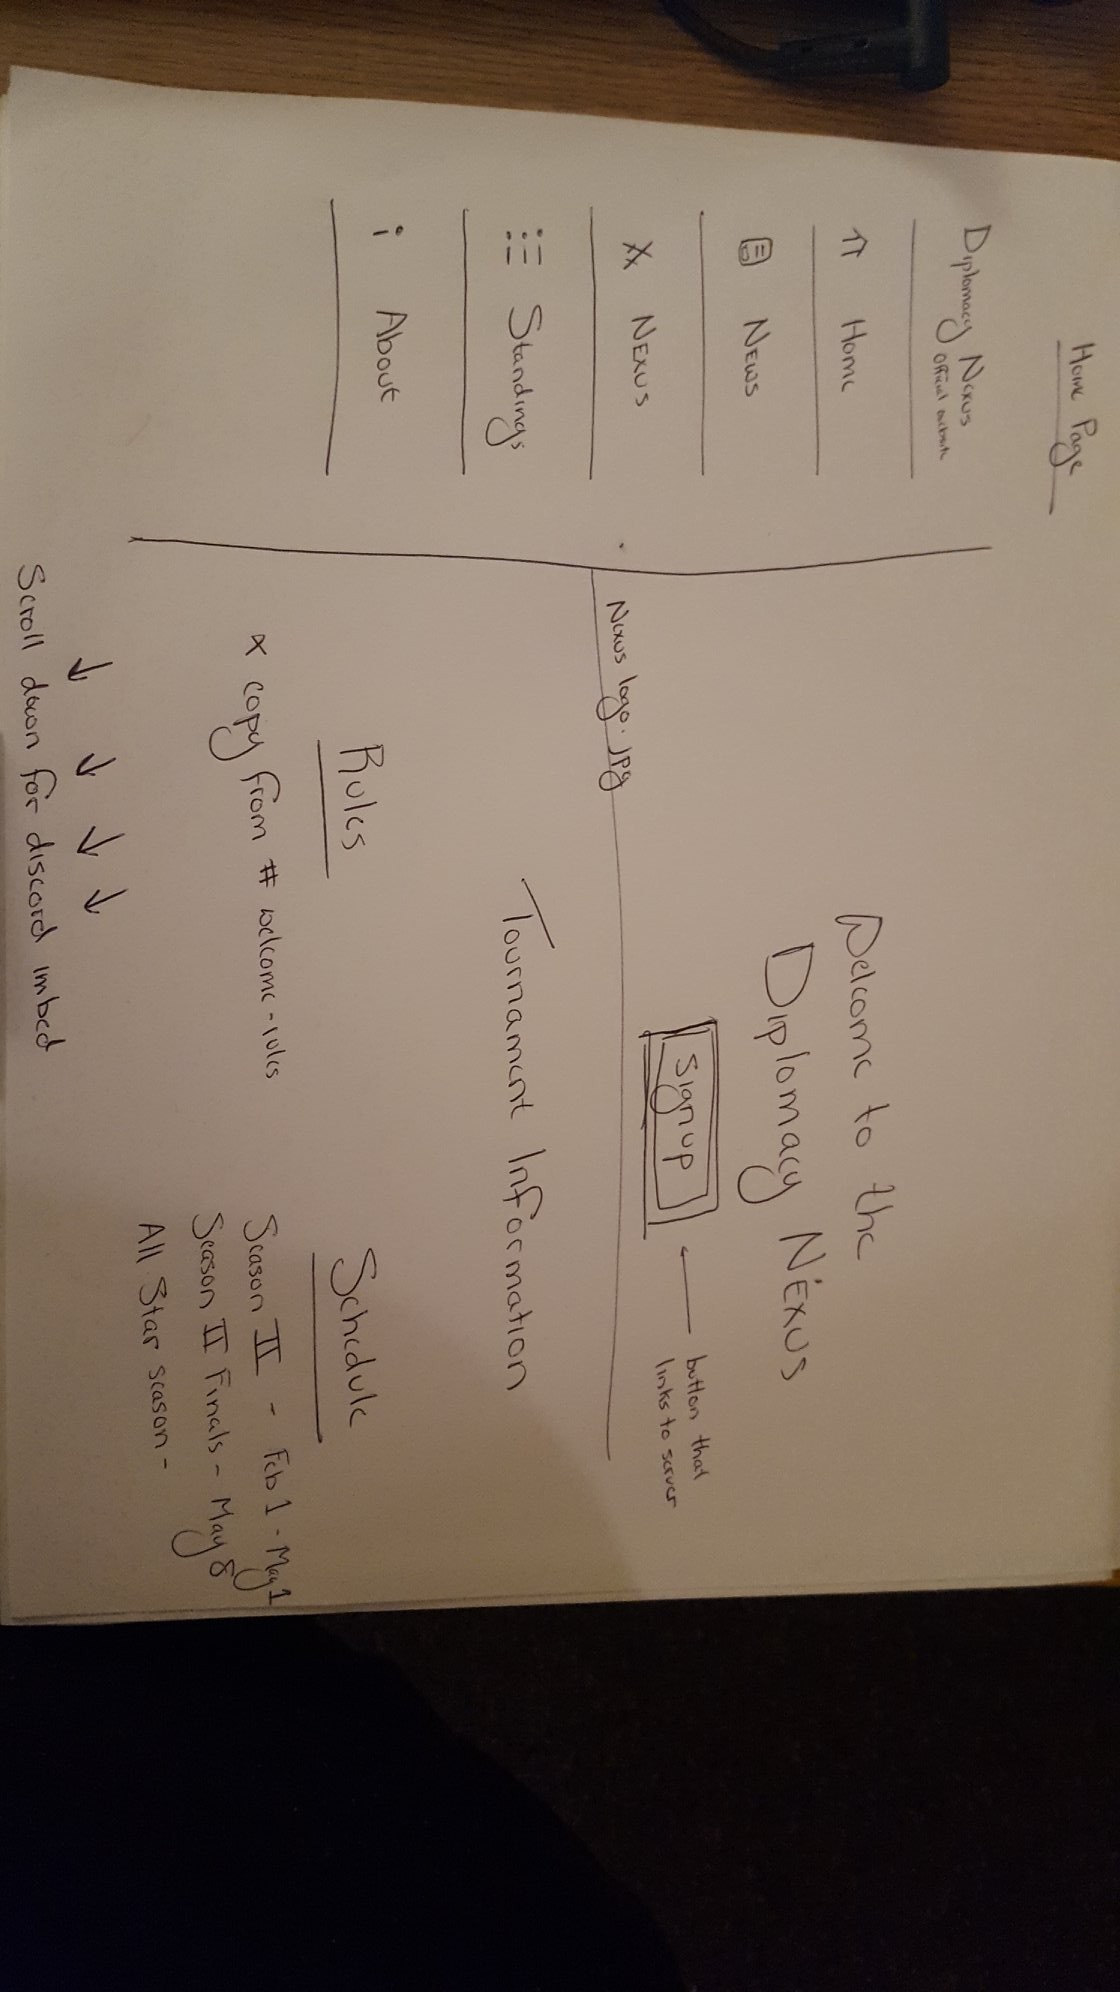 Home Page
Diplomacy Nexus
Official website
Home
News
Nexus
Standings
i About
Welcome to the
Diplomacy Nexus
Signup
button that
links to server
Nexus logo.jpg
Tournament Information
Rules
* copy from # welcome-rules
Schedule
Season II - Feb 1 - May 1
Season II Finals - May 8
All Star season -
Scroll down for discord imbed